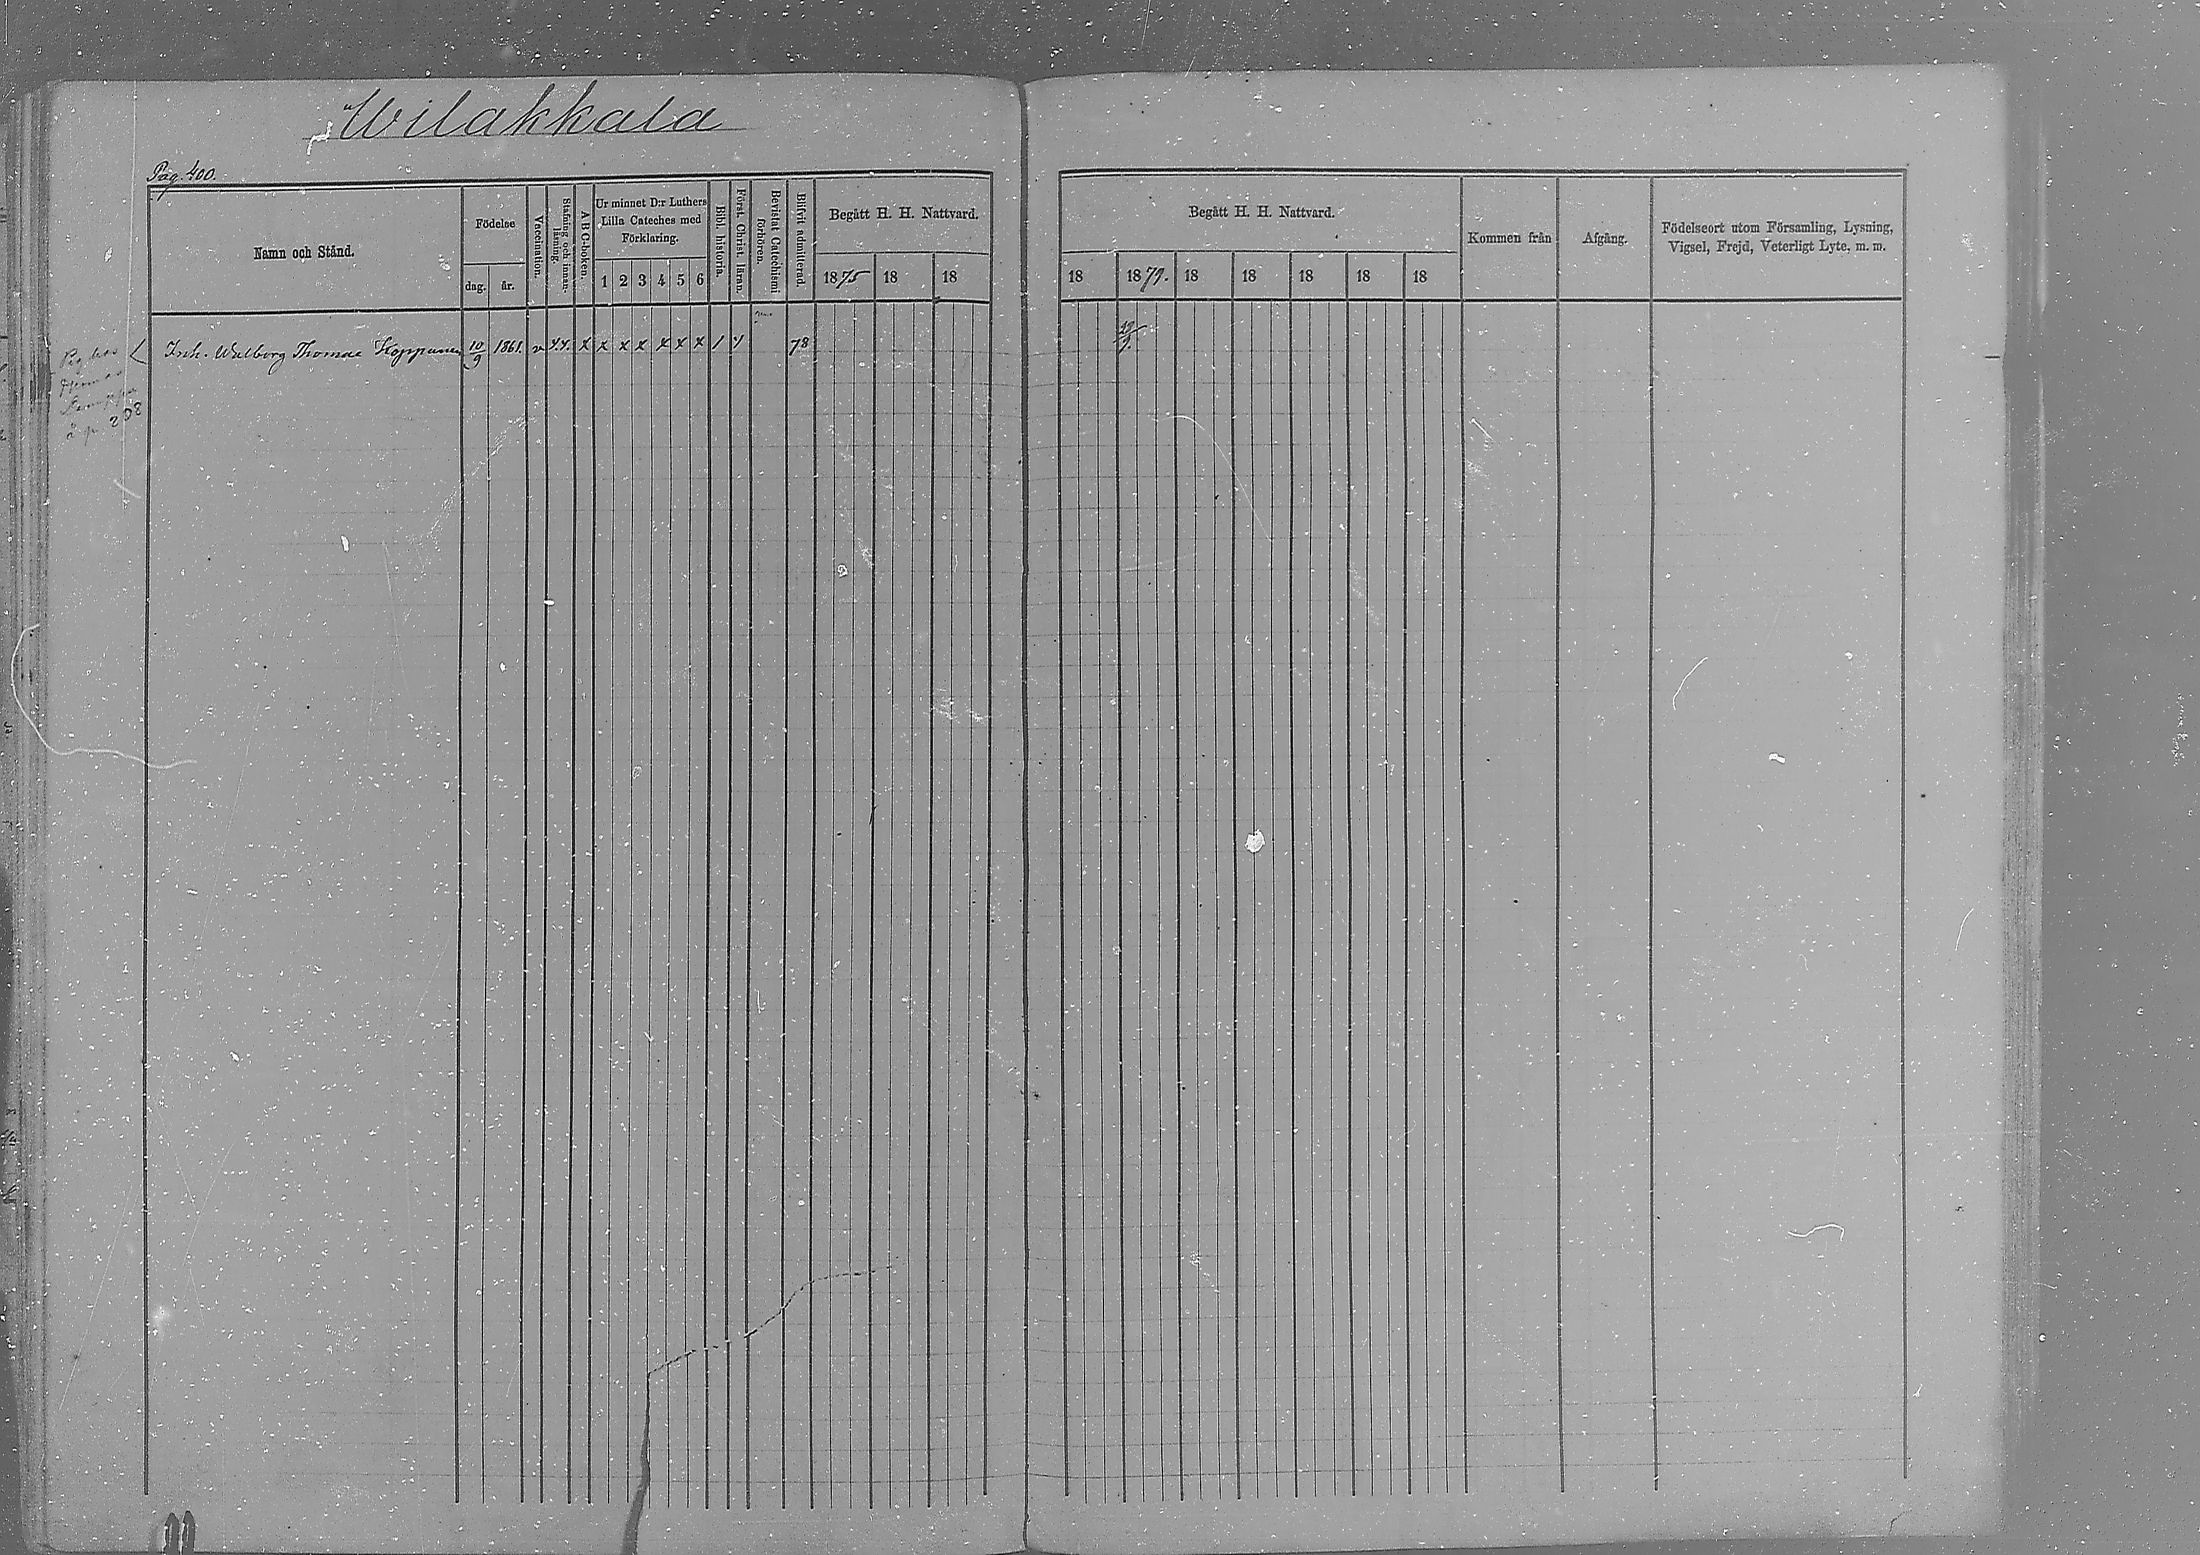 Wilakkala
Pag. 400.
Namn och Stånd.
Födelse
dag.
år.
Vaccination.
Stafning och innan-
läsning.
A B C-boken.
Ur minnet D:r Luthers
Lilla Cateches med
Förklaring.
1 2 3 4 5 6
Bibl. historia.
Först. Christ. läran.
Bevistat Catechismi
förhören.
Blifvit admitterad.
Begått H. H. Nattvard.
1875 18 18
Begått H. H. Nattvard.
18 1879. 18 18 18 18 18
Kommen från
Afgång.
Födelseort utom Församling, Lysning,
Vigsel, Frejd, Veterligt Lyte, m. m.
Inh. Walborg Thomae Koppanen 10/9 1861. v x.x. x x x x x x x 1 1 78
å p. 208